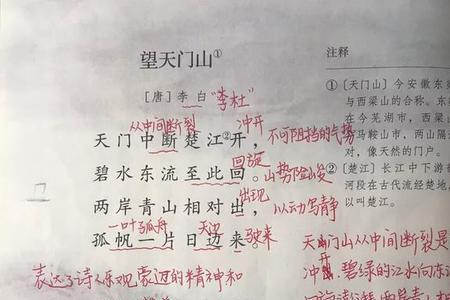 望天门山①
[唐] 李白 “李杜”
从中间断裂 冲开
天门中断楚江②开，不可阻挡的气势
回旋
碧水东流至此回。山势险峻
出现
两岸青山相对出，以动写静
一叶孤舟 天边
孤帆一片日边来。驶来
表达了诗人乐观豪迈的精神和
注释
① [天门山] 今安徽东
与西梁山的合称。东
在今芜湖市，西梁山
马鞍山市，两山隔
对，像天然的门户。
② [楚江] 长江中下游
河段在古代流经楚地，
以叫楚江。
天门山从中间断裂是
冲开 碧绿的江水向东